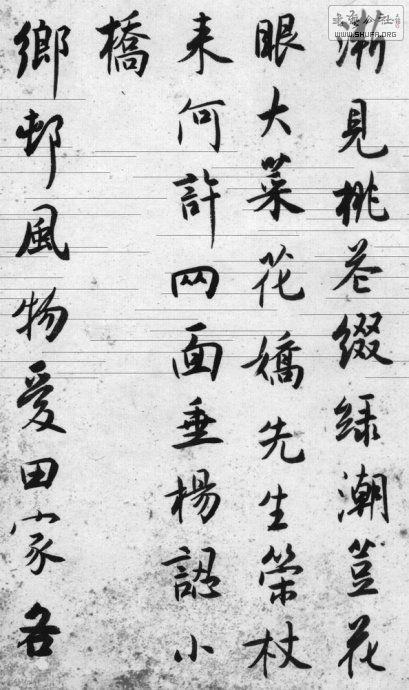 漸見桃花綴緑潮荳花
眼大菜花嬌先生策杖
来何許兩面垂楊認小
橋
鄉邨風物愛田家各
書藝公社
WWW.SHUFA.ORG